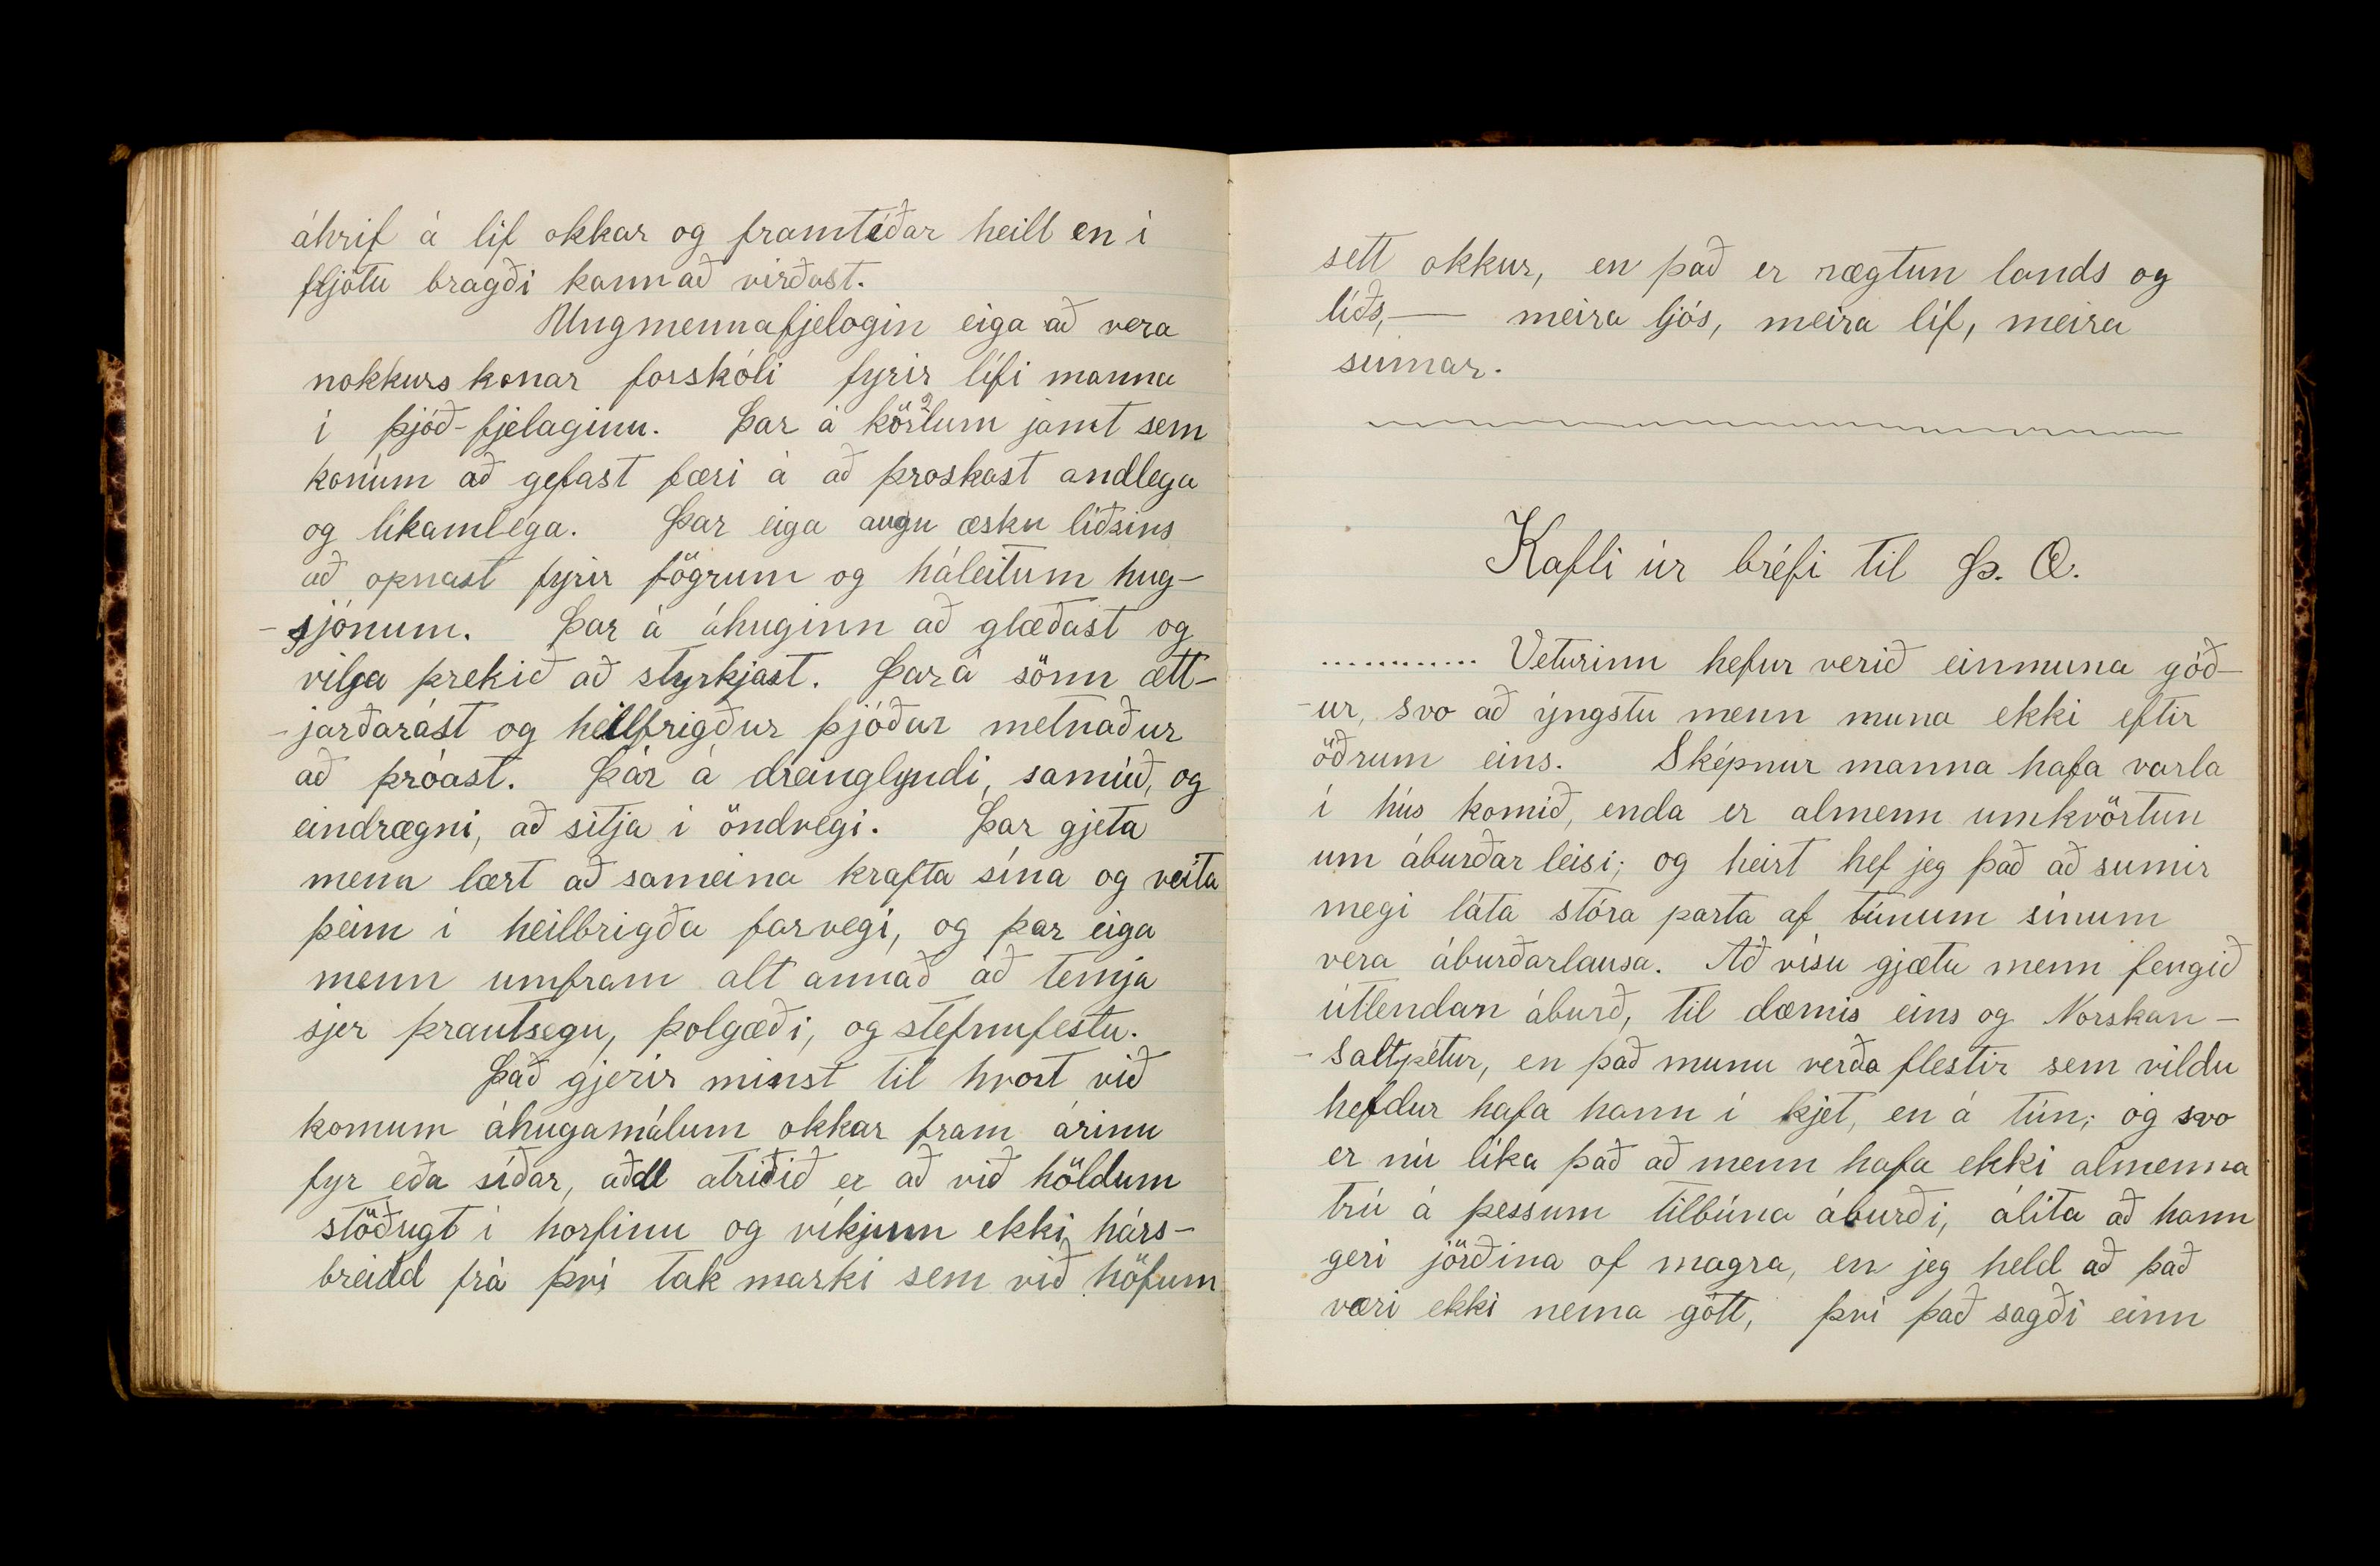 áhrif á líf okkar og framtíðar heill en í
fljótu bragði kann að virðast.
Ungmennafjelogin eiga að vera
nokkurs konar forskóli fyrir lífi manna
í þjóð-fjelaginu. Þar á körlum jamt sem
konum að gefast færi á að þroskast andlega
og líkamlega. Þar eiga augu æsku liðsins
að opnast fyrir fögrum og háleitum hug-
-sjónum. Þar á áhuginn að glæðast og
vilja þrekið að styrkjast. Þar á sönn ætt-
-jarðarást og heilbrigður þjóðar metnaður
að þróast. Þar á dreinglyndi, samúð, og
eindrægni, að sitja í öndvegi. Þar gjeta
menn lært að sameina krafta sína og veita
þeim í heilbrigða farvegi, og þar eiga
menn umfram alt annað að temja
sjer þrautsegu, þolgæði, og stefnufestu.
Það gjerir minst til hvort við
komum áhugamálum okkar fram árinu
fyr eða síðar, aðal atriðið er að við höldum
stöðugt í horfinu og víkjum ekki hárs-
breidd frá því tak marki sem við höfum
sett okkur, en það er rægtun lands og
líðs,— meira ljós, meira líf, meira
sumar.
Kafli úr bréfi til Þ. O.
............ Veturinn hefur verið einmuna góð-
-ur, svo að yngstu menn muna ekki eftir
öðrum eins. Sképnur manna hafa varla
í hús komið, enda er almenn umkvörtun
um áburðar leisi; og heirt hef jeg það að sumir
megi láta stóra parta af túnum sínum
vera áburðarlausa. Að vísu gjætu menn fengið
útlendan áburð, til dæmis eins og Norskan-
-saltpétur, en það munu verða flestir sem vildu
heldur hafa hann í kjet, en á tún; og svo
er nú líka það að menn hafa ekki almenna
trú á þessum tilbúna áburði, álíta að hann
geri jörðina of magra, en jeg held að það
væri ekki nema gótt, því það sagði einn